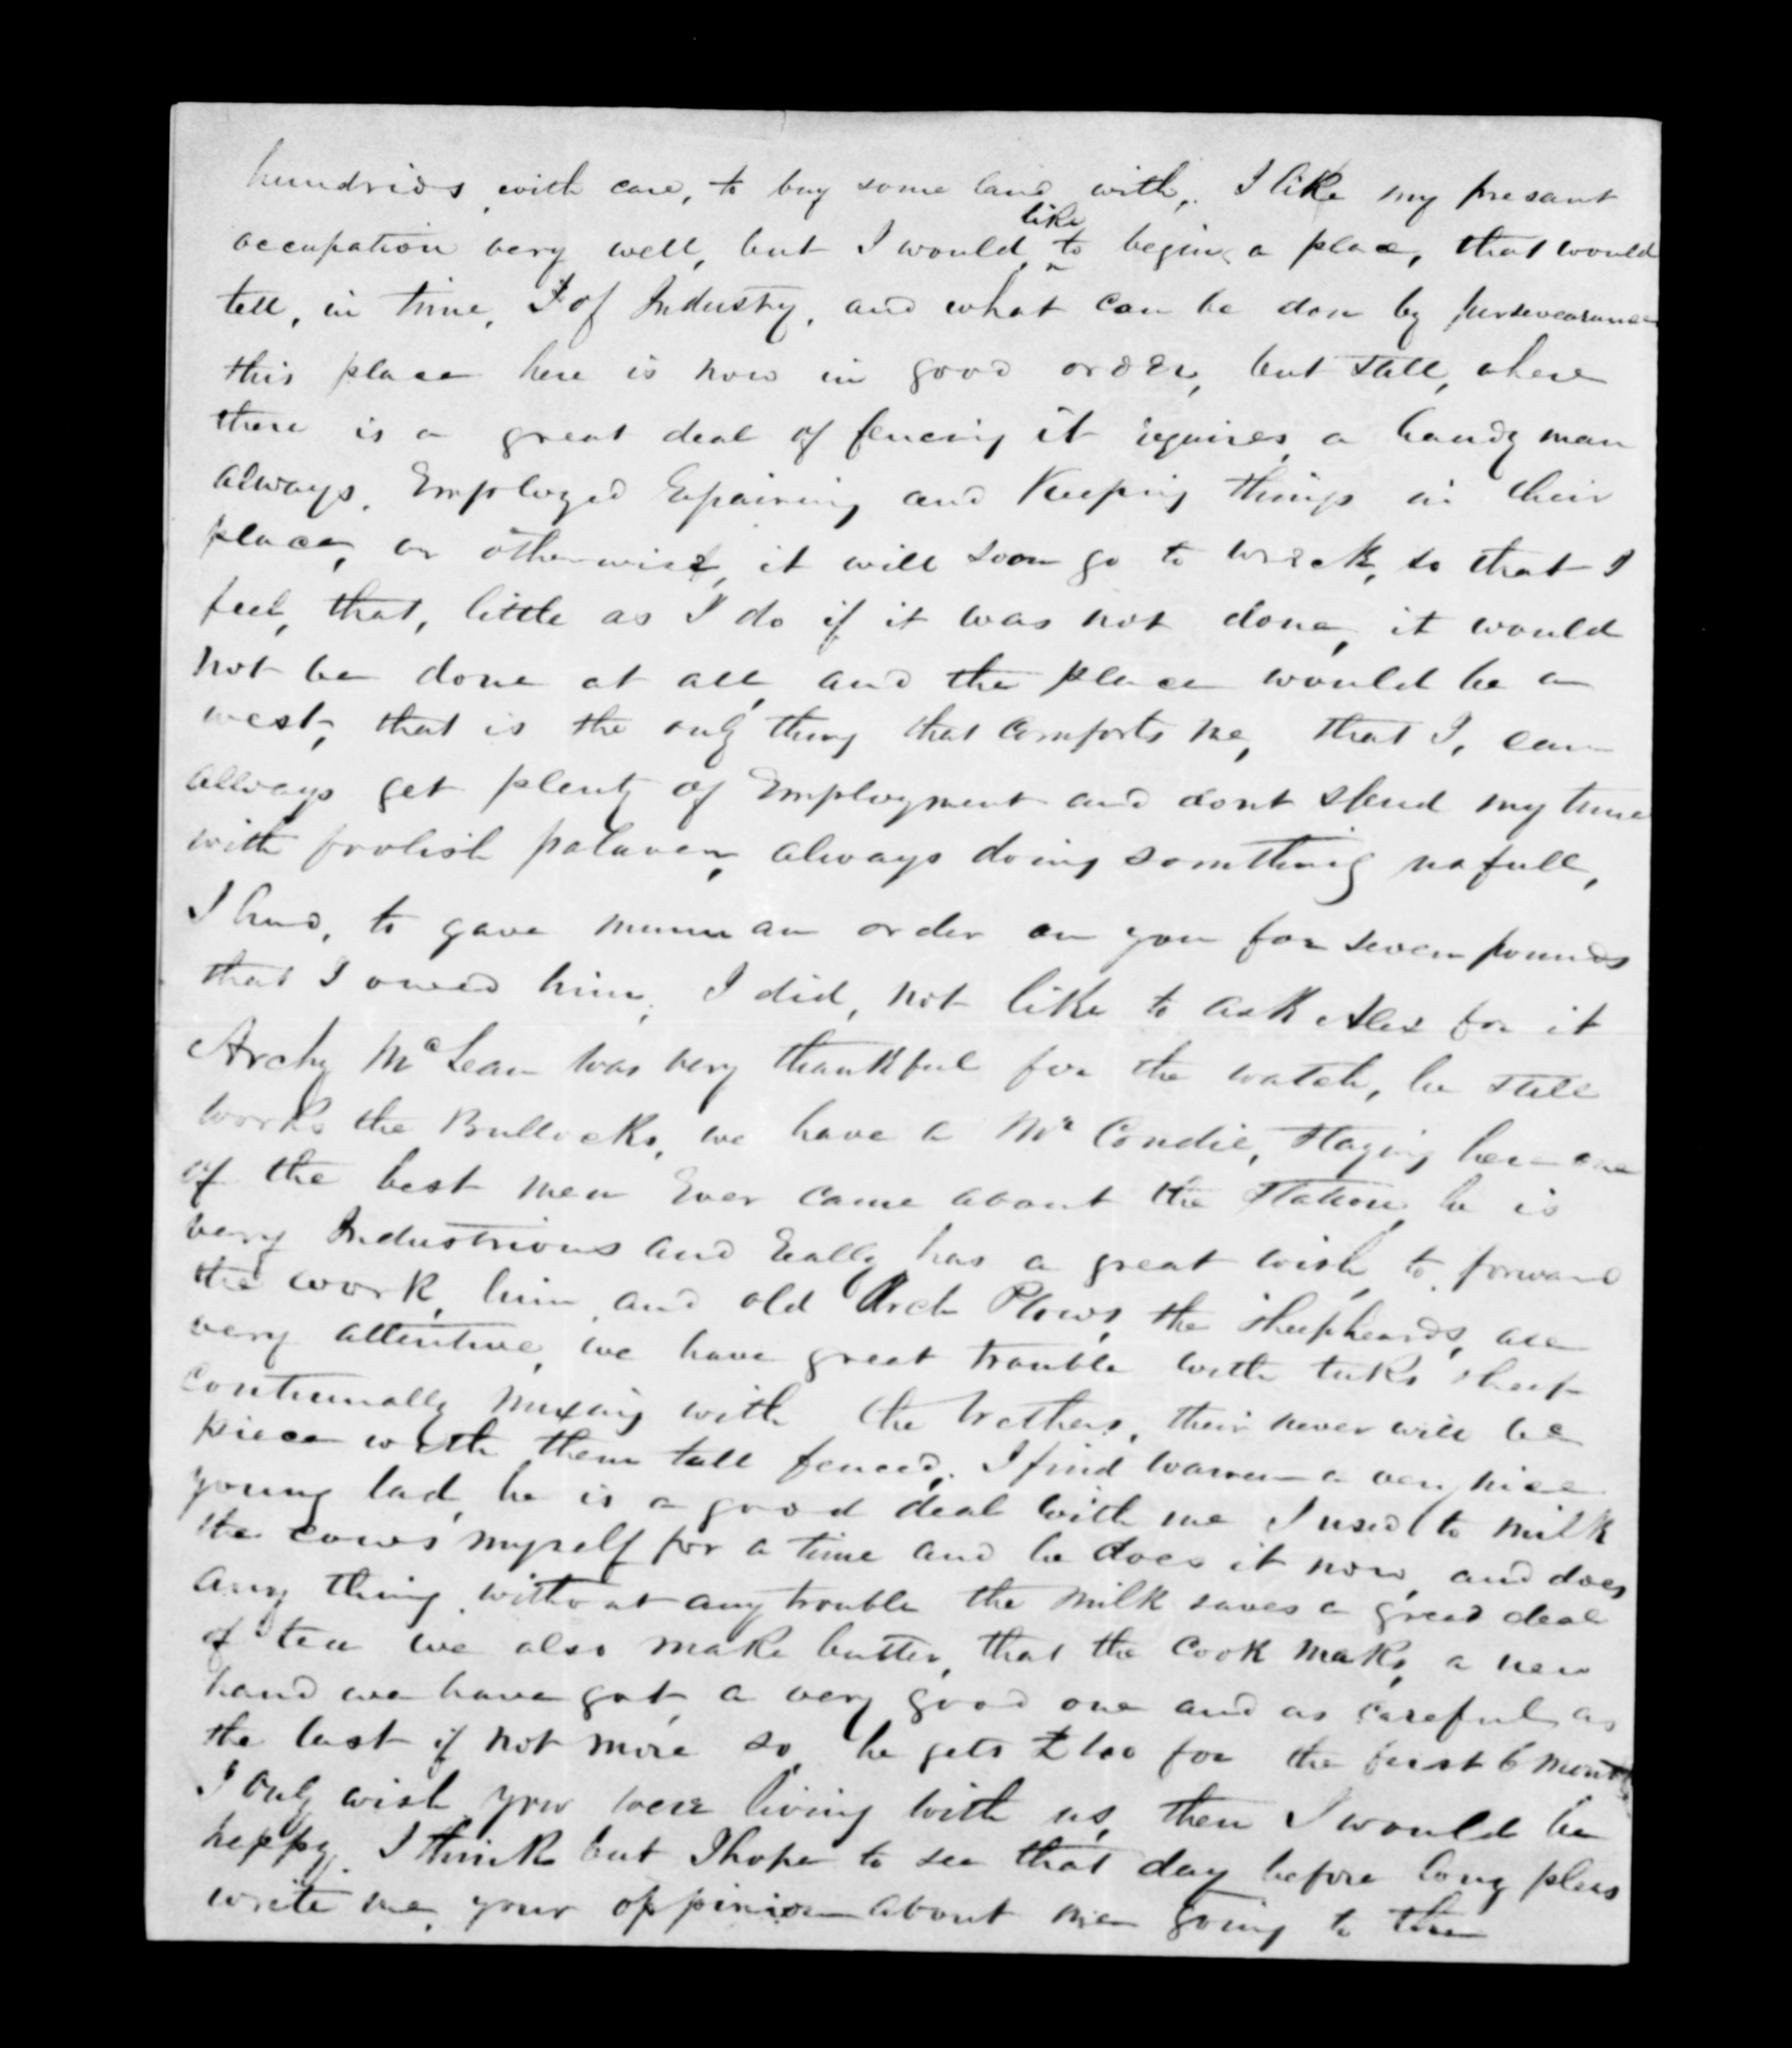 hundrids with care, to buy some land with, I like my presant
occupation very well, but I would like to begin a place, that would
tell, in time, of Industry, and what can be don by persevearance
this place here is now in good order, but still, where
there is a great deal of fencing it requires a handy man
always. Employed Repairing and Keeping things in their
place, or otherwise, it will soon go to wreck, so that I
feel, that, little as I do if it was not done, it would
not be done at all, and the place would be a
west, that is the only thing that comforts me, that I, can
allways get plenty of Employment and dont spend my time
with foolish palaver, always doing something usfull,
I had, to gave an order on you for seven pounds
that I owed him, I did, not like to ask Alex for it
Archy McLean was very thankful for the watch, he still
works the Bullocks, we have a Mr Condie, staying here one
of the best men Ever came about the station, he is
very Industrious and Really has a great wish, to forward
the work, him, and old Arch Plows, the sheepheards, are
very attentive, we have great trouble with tuks sheep
continually mixing with the wethers, their never will be
piece with them till fenced. I find a very nice
young lad, he is a good deal with me I used to milk
the cows myself for a time and he does it now, and does
any thing without any trouble the milk saves a great deal
of tea we also make butter, that the Cook maks, a new
hand we have got, a very good one and as careful as
the last if not more so, he gets £100 for the first 6 months
I only wish you were living with us, then I would be
happy, I think but I hope to see that day before long pleas
write me, your oppinion about me going to the